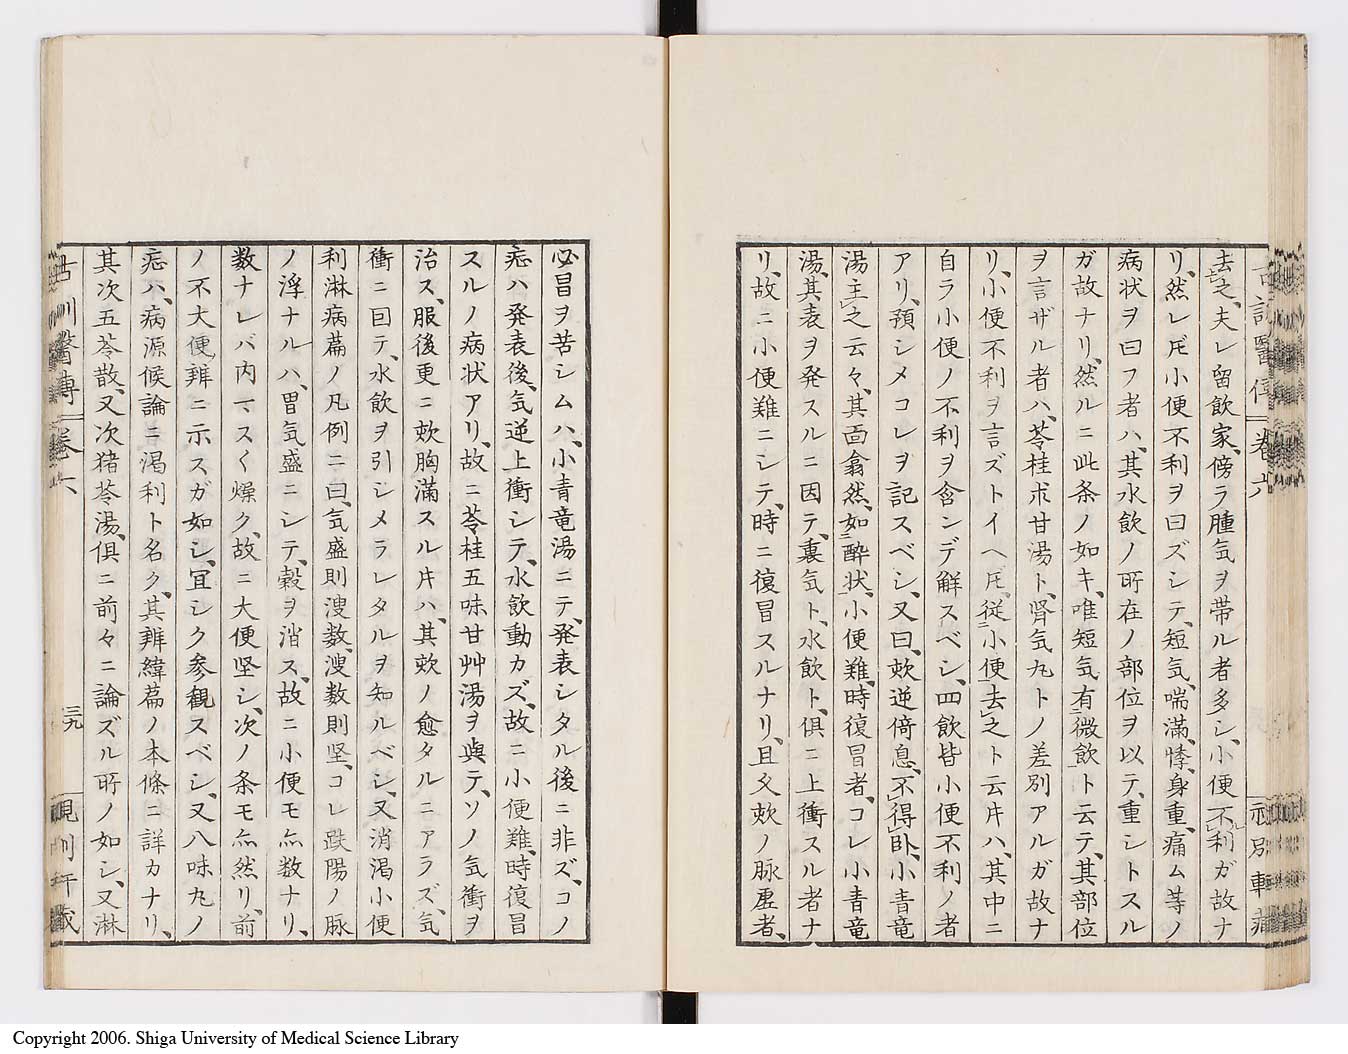 去之、夫レ留飲家、傍ラ腫気ヲ帯ル者多シ、小便不利ガ故ナ
リ、然レ𪜈小便不利ヲ曰ズシテ、短気、喘滿、悸、身重、痛ム等ノ
病状ヲ曰フ者ハ、其水飲ノ所在ノ部位ヲ以テ、重シトスル
ガ故ナリ、然ルニ此条ノ如キ、唯短気有微飲ト云テ、其部位
ヲ言ザル者ハ、苓桂朮甘湯ト、腎気丸トノ差別アルガ故ナ
リ、小便不利ヲ言ズトイヘ𪜈、従小便去之ト云片ハ、其中ニ
自ラ小便ノ不利ヲ含ンデ解スベシ、四飲皆小便不利ノ者
アリ、預シメコレヲ記スベシ、又曰、欬逆倚息、不得卧、小青竜
湯主之云々、其面翕然、如酔状、小便難、時復冒者、コレ小青竜
湯、其表ヲ発スルニ因テ、裏気ト、水飲ト、俱ニ上衝スル者ナ
リ、故ニ小便難ニシテ、時ニ復冒スルナリ、且又欬ノ脉虚者、
必冒ヲ苦シムハ、小青竜湯ニテ、発表シタル後ニ非ズ、コノ
症ハ発表後、気逆上衝シテ、水飲動カズ、故ニ小便難、時復冒
スルノ病状アリ、故ニ苓桂五味甘艸湯ヲ與テ、ソノ気衝ヲ
治ス、服後更ニ欬胸滿スル片ハ、其欬ノ愈タルニアラズ、気
衝ニ囙テ、水飲ヲ引シメラレタルヲ知ルベシ、又消渇小便
利淋病篇ノ凡例ニ曰、気盛則溲数、溲数則坚、コレ趺陽ノ脉
ノ浮ナルハ、胃気盛ニシテ、穀ヲ消ス、故ニ小便モ亦数ナリ、
数ナレバ内マスく燥ク、故ニ大便坚シ、次ノ条モ亦然リ、前
ノ不大便、辨ニ示スガ如シ、冝シク参観スベシ、又八味丸ノ
症ハ、病源候論ニ渇利ト名ク、其辨緯篇ノ本條ニ詳カナリ、
其次五苓散、又次猪苓湯、俱ニ前々ニ論ズル所ノ如シ、又淋
古訓醫傳 卷六 三九